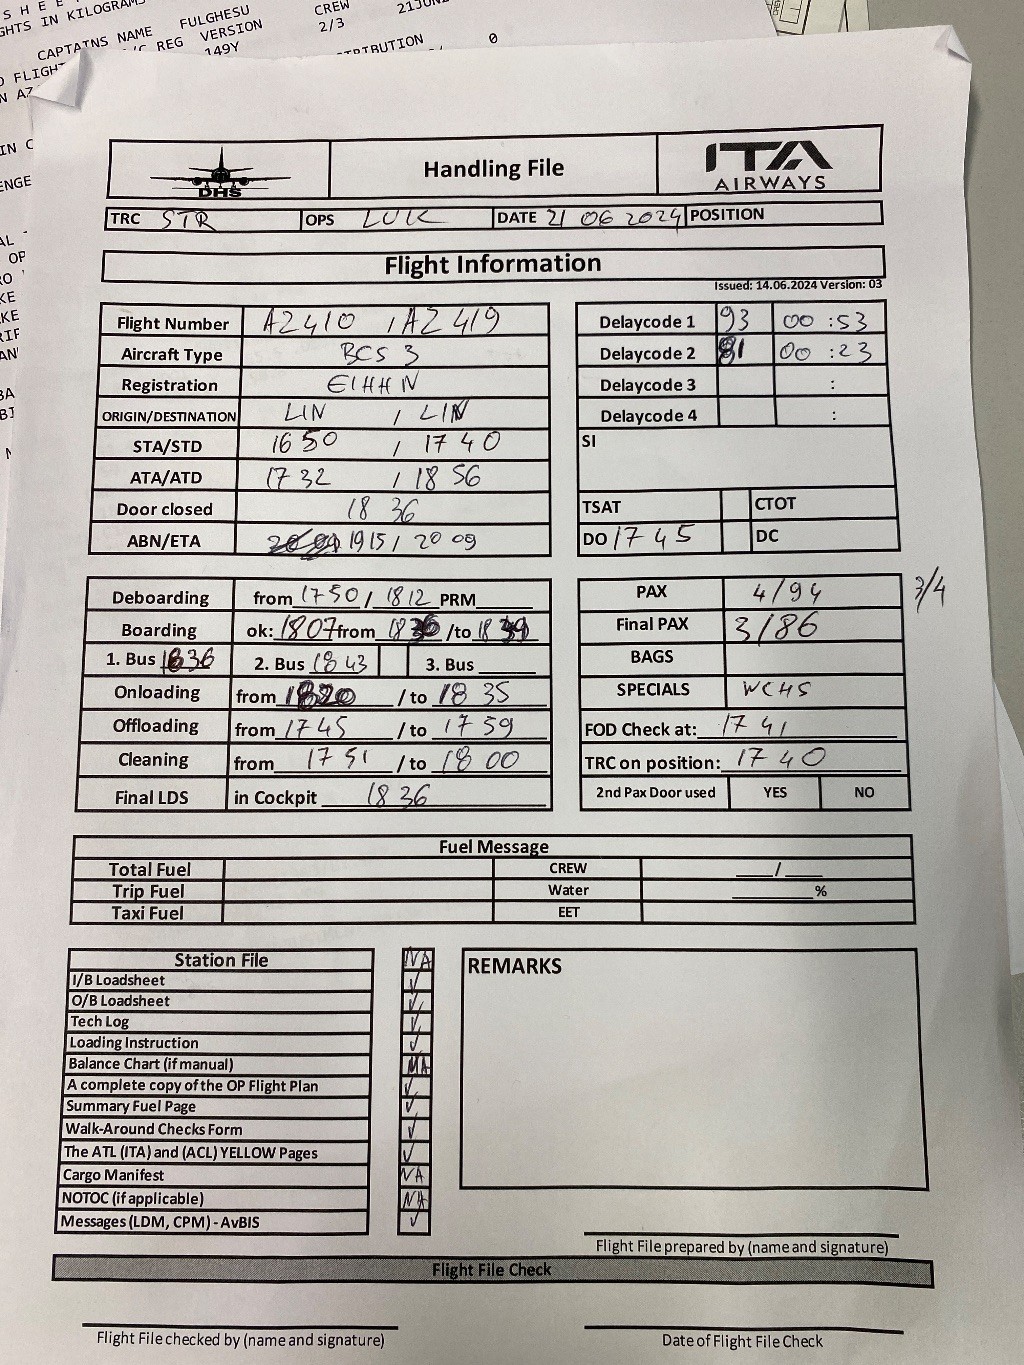 S H E E
GHTS IN KILOGRAMS
CAPTAINS NAME FULGHESU CREW 21JUN
FLIGHT A/C REG VERSION 2/3
N AZ 149Y
DISTRIBUTION 0
IN C
ENGE
AL
OP
RO
KE
KE
RIF
AN
BA
BI
N
DHS
Handling File
ITA
AIRWAYS
TRC STR OPS LUK DATE 21 06 2024 POSITION
Flight Information
Issued: 14.06.2024 Version: 03
Flight Number AZ410 / AZ419 Delaycode 1 93 00 :53
Aircraft Type BCS 3 Delaycode 2 81 00 :23
Registration EIHHN Delaycode 3 :
ORIGIN/DESTINATION LIN / LIN Delaycode 4 :
STA/STD 16 50 / 17 40 SI
ATA/ATD 17 32 / 18 56
Door closed 18 36 TSAT CTOT
ABN/ETA 1915 / 20 09 DO 17 45 DC
Deboarding from 1750 / 1812 PRM PAX 4/94 3/4
Boarding ok: 1807 from /to Final PAX 3/86
1. Bus 1836 2. Bus 1843 3. Bus BAGS
Onloading from 1820 / to 18 35 SPECIALS WCHS
Offloading from 1745 / to 17 59 FOD Check at: 17 41
Cleaning from 17 51 / to 18 00 TRC on position: 17 40
Final LDS in Cockpit 18 36 2nd Pax Door used YES NO
Fuel Message
Total Fuel CREW /
Trip Fuel Water %
Taxi Fuel EET
Station File NA REMARKS
I/B Loadsheet ✓
O/B Loadsheet ✓
Tech Log ✓
Loading Instruction ✓
Balance Chart (if manual) NA
A complete copy of the OP Flight Plan ✓
Summary Fuel Page ✓
Walk-Around Checks Form ✓
The ATL (ITA) and (ACL) YELLOW Pages ✓
Cargo Manifest NA
NOTOC (if applicable) NA
Messages (LDM, CPM) - AvBIS ✓
Flight File prepared by (name and signature)
Flight File Check
Flight File checked by (name and signature) Date of Flight File Check